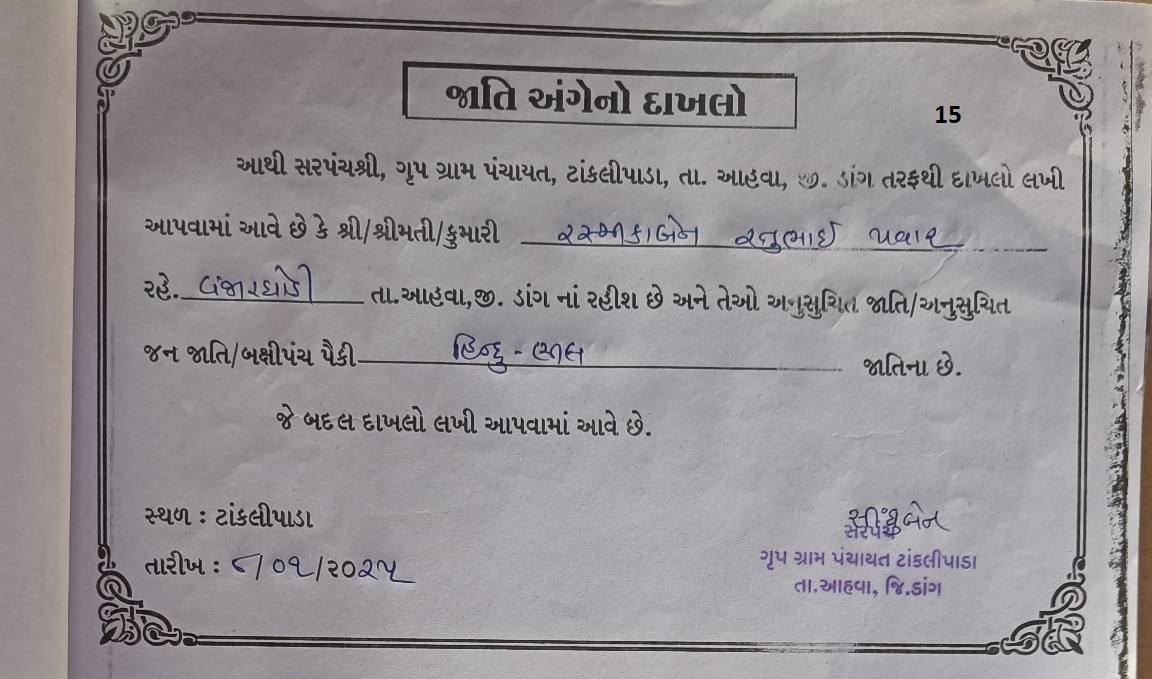 જાતિ અંગેનો દાખલો
15
આથી સરપંચશ્રી, ગૃપ ગ્રામ પંચાયત, ટાંકલીપાડા, તા. આહવા, જી. ડાંગ તરફથી દાખલો લખી
આપવામાં આવે છે કે શ્રી/શ્રીમતી/કુમારી રસ્મીકાબેન રનુભાઈ પવાર
રહે. લહારઘોડી તા.આહવા,જી. ડાંગ નાં રહીશ છે અને તેઓ અનુસુચિત જાતિ/અનુસુચિત
જન જાતિ/બક્ષીપંચ પૈકી હિન્દુ - ભીલ જાતિના છે.
જે બદલ દાખલો લખી આપવામાં આવે છે.
સ્થળ : ટાંકલીપાડા
તારીખ : ૮/૦૧/૨૦૨૫
સીંધુબેન
સરપંચ
ગૃપ ગ્રામ પંચાયત ટાંકલીપાડા
તા.આહવા, જિ.ડાંગ